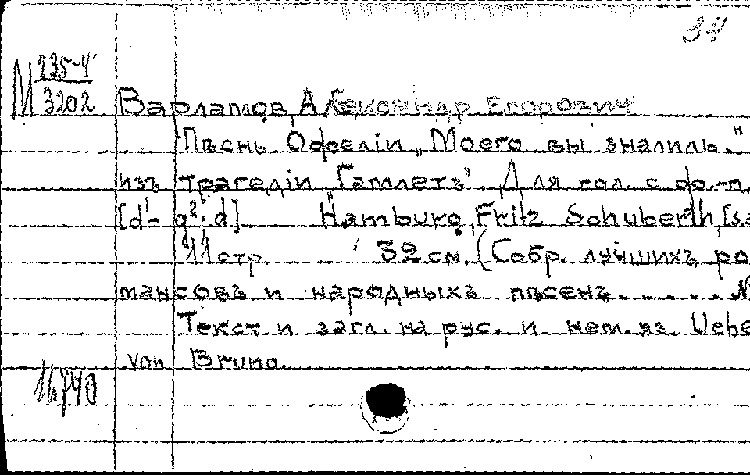 34
М 235-4
3202
Варламов, Александр Егорович
Пѣснь Офеліи „Моего вы знали ль."
изъ трагедіи „Гамлетъ". Для гол. с ф.-п.
[d¹- g²: d] Hamburg, Fritz Schuberth, [s.
11 стр. 32 см. (Собр. лучшихъ ро
мансовъ и народныхъ пѣсенъ......
Текст и загл. на рус. и нем. яз. Uebe
von Bruno.
16740